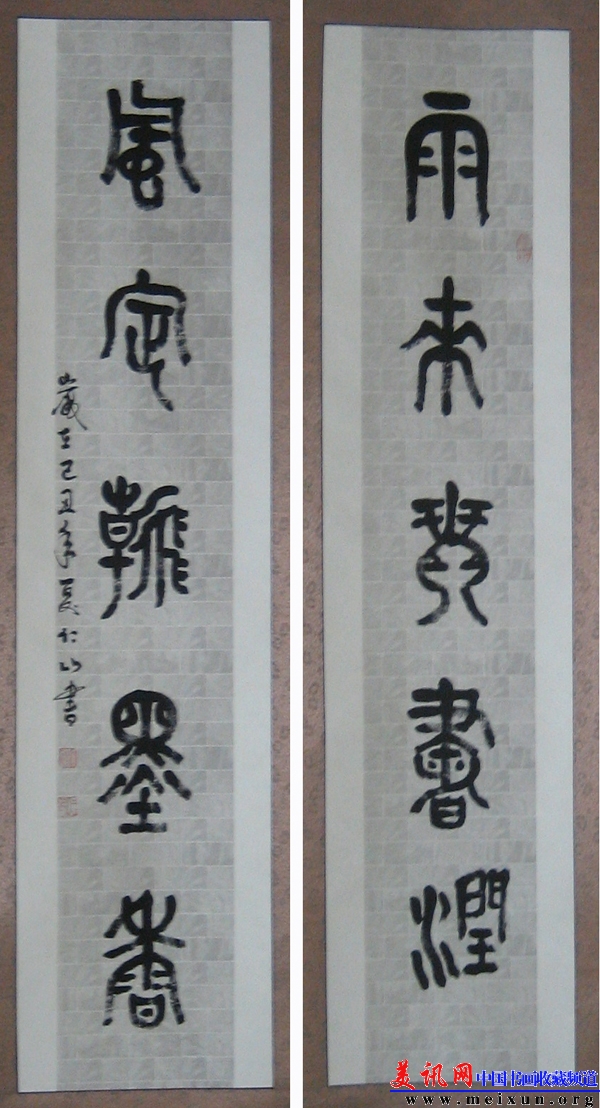 雨来琴書潤
風定翰墨香
歲在己丑年夏仁山書
美讯网 中国书画收藏频道
www.meixun.org